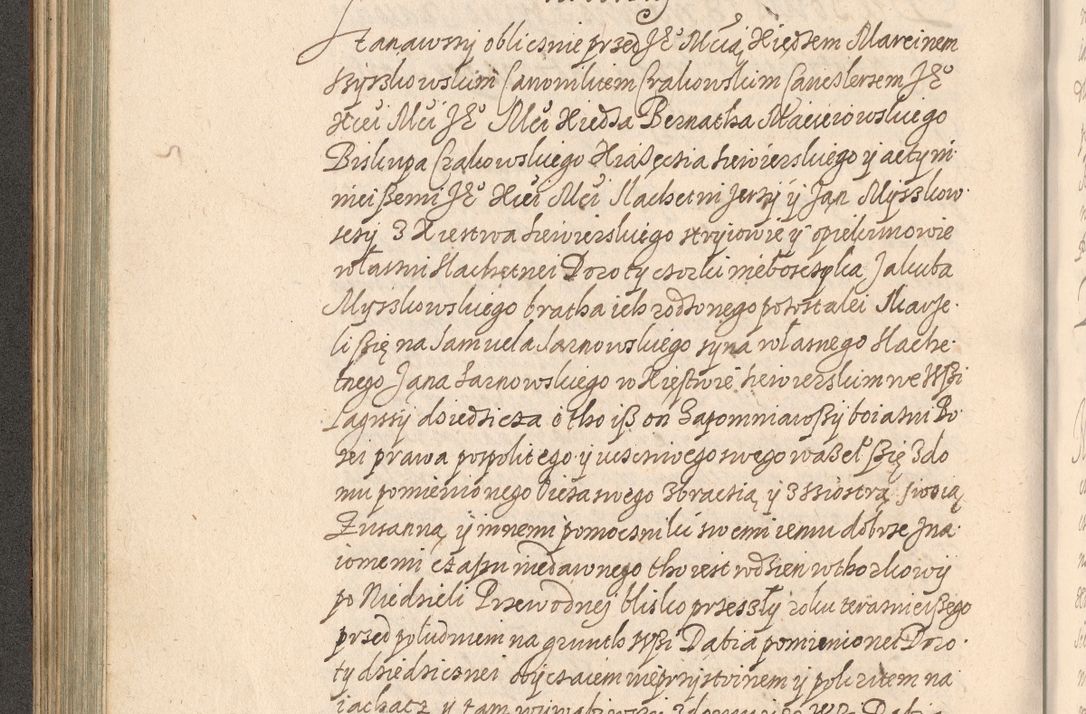 Stanąwszy oblicznie przed Je° Mcią Xiędzem Marcinem
Szyszkowskim Canonikiem Crakowskim Canclerzem Je°
Xcei Mci Je° Mci Xiedza Bernatha Macieiowskiego
Biskupa Crakowskiego Xiążęczia siewierskiego y actymi
niei ßemi Je° Xcei Mci slachetni Jerzy y Jan Myszkow
sczy z Xiestwa siewierskiego stryiowie y opiekunowie
własni slachętnei Doroty czorki niebosczyka Jakuba
Myszkowskiego bratha ich rodzonego pozostałei skarże
li ßię na Samuela Sarnowskiego syna własnego slache
tnego Jana Sarnowskiego w Xięstwie siewierskim we Wßi
Łagissy dziedzicza o tho iß on zapomniawßy boiazni Bo
zei prawa pospolitego y ucsciwego swego wział ßię z do
mu pomienionego oicza swego z braczią y z siostrą swoią
Zuzanną y innemi pomocniki swemi iemu dobrze zna
iomemi czassu niedawnego tho iest w dzien wthorkowy
po Niedzieli Przewodnej blisko przeszły roku teraznieißego
przed południem na grunth Wßi Dabia pomienionei Doro
ty dziedzicznei obyczaiem nieprzystoinem y policzitem na
iachacz y tam